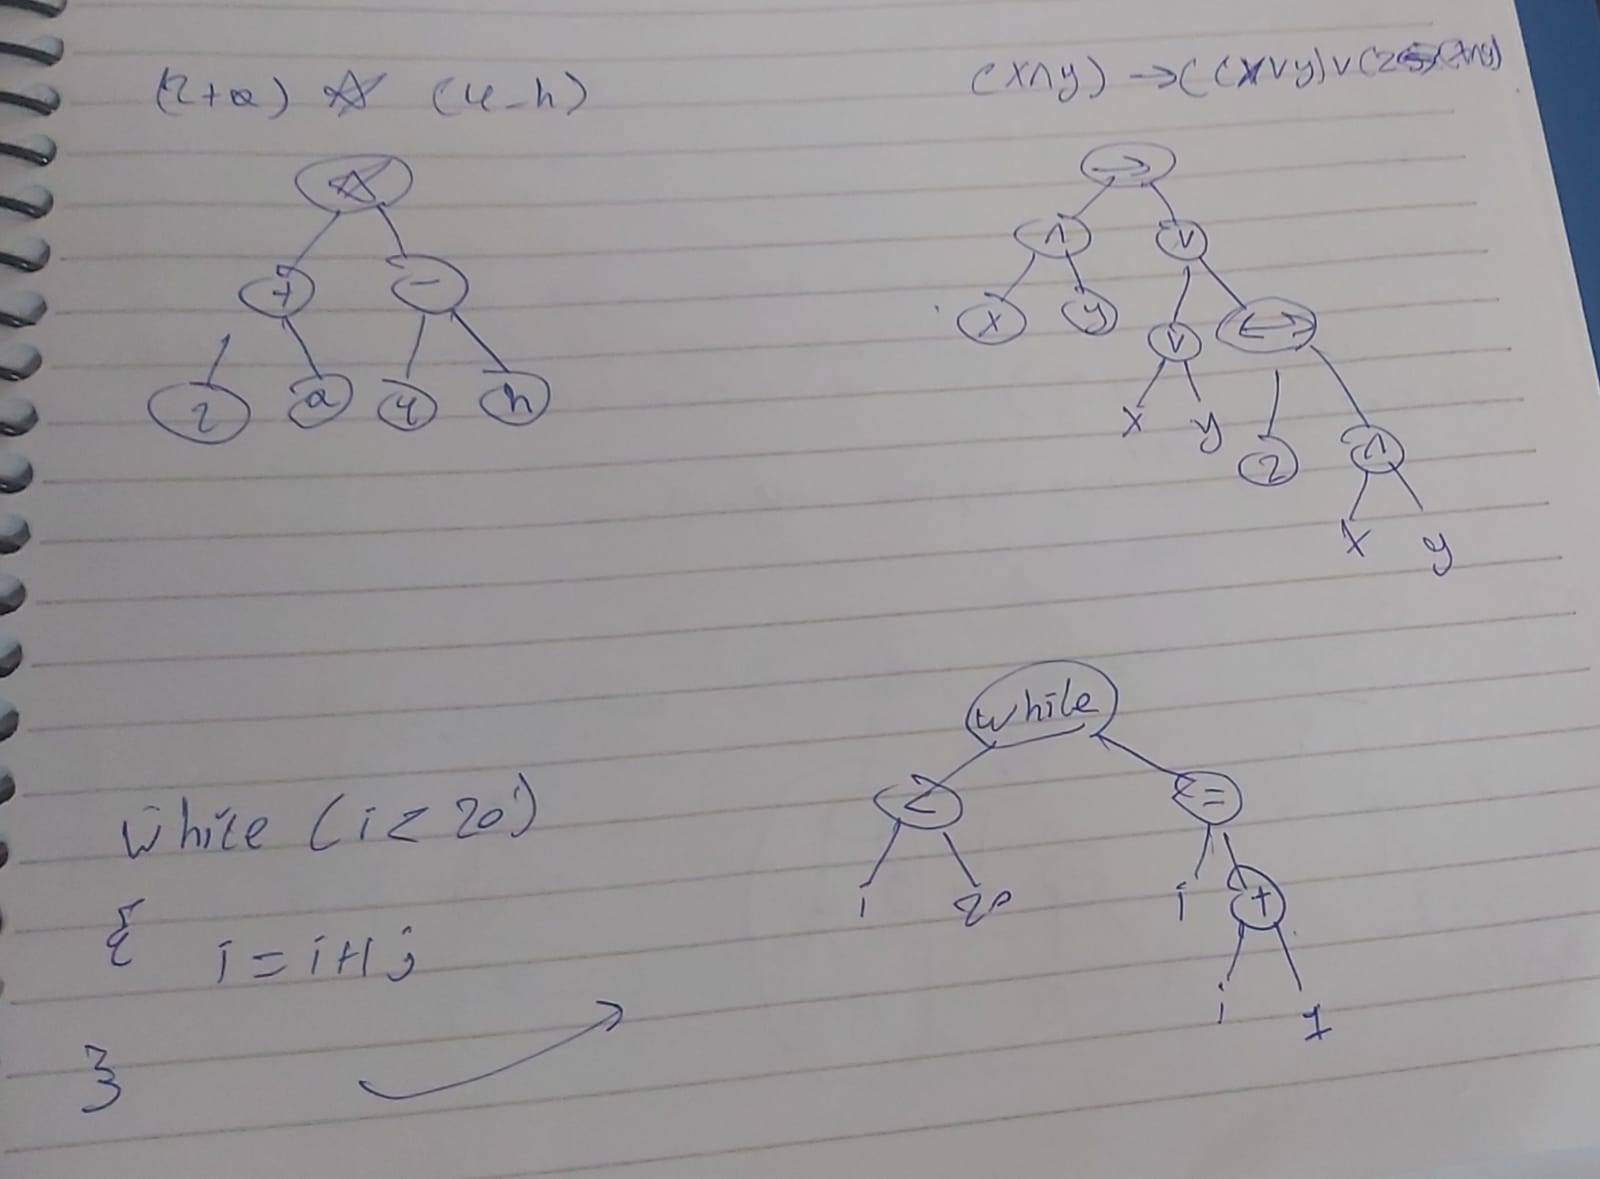 (2+a) * (4-h)
*
+ -
2 a 4 h
(x∧y) → ((x∨y)∨(2 (x∧y)
→
∧ ∨
x y ∨ ↔
x y 2 ∧
x y
while (i < 20)
{
i = i+1;
}
while
< =
i 20 i +
i 1